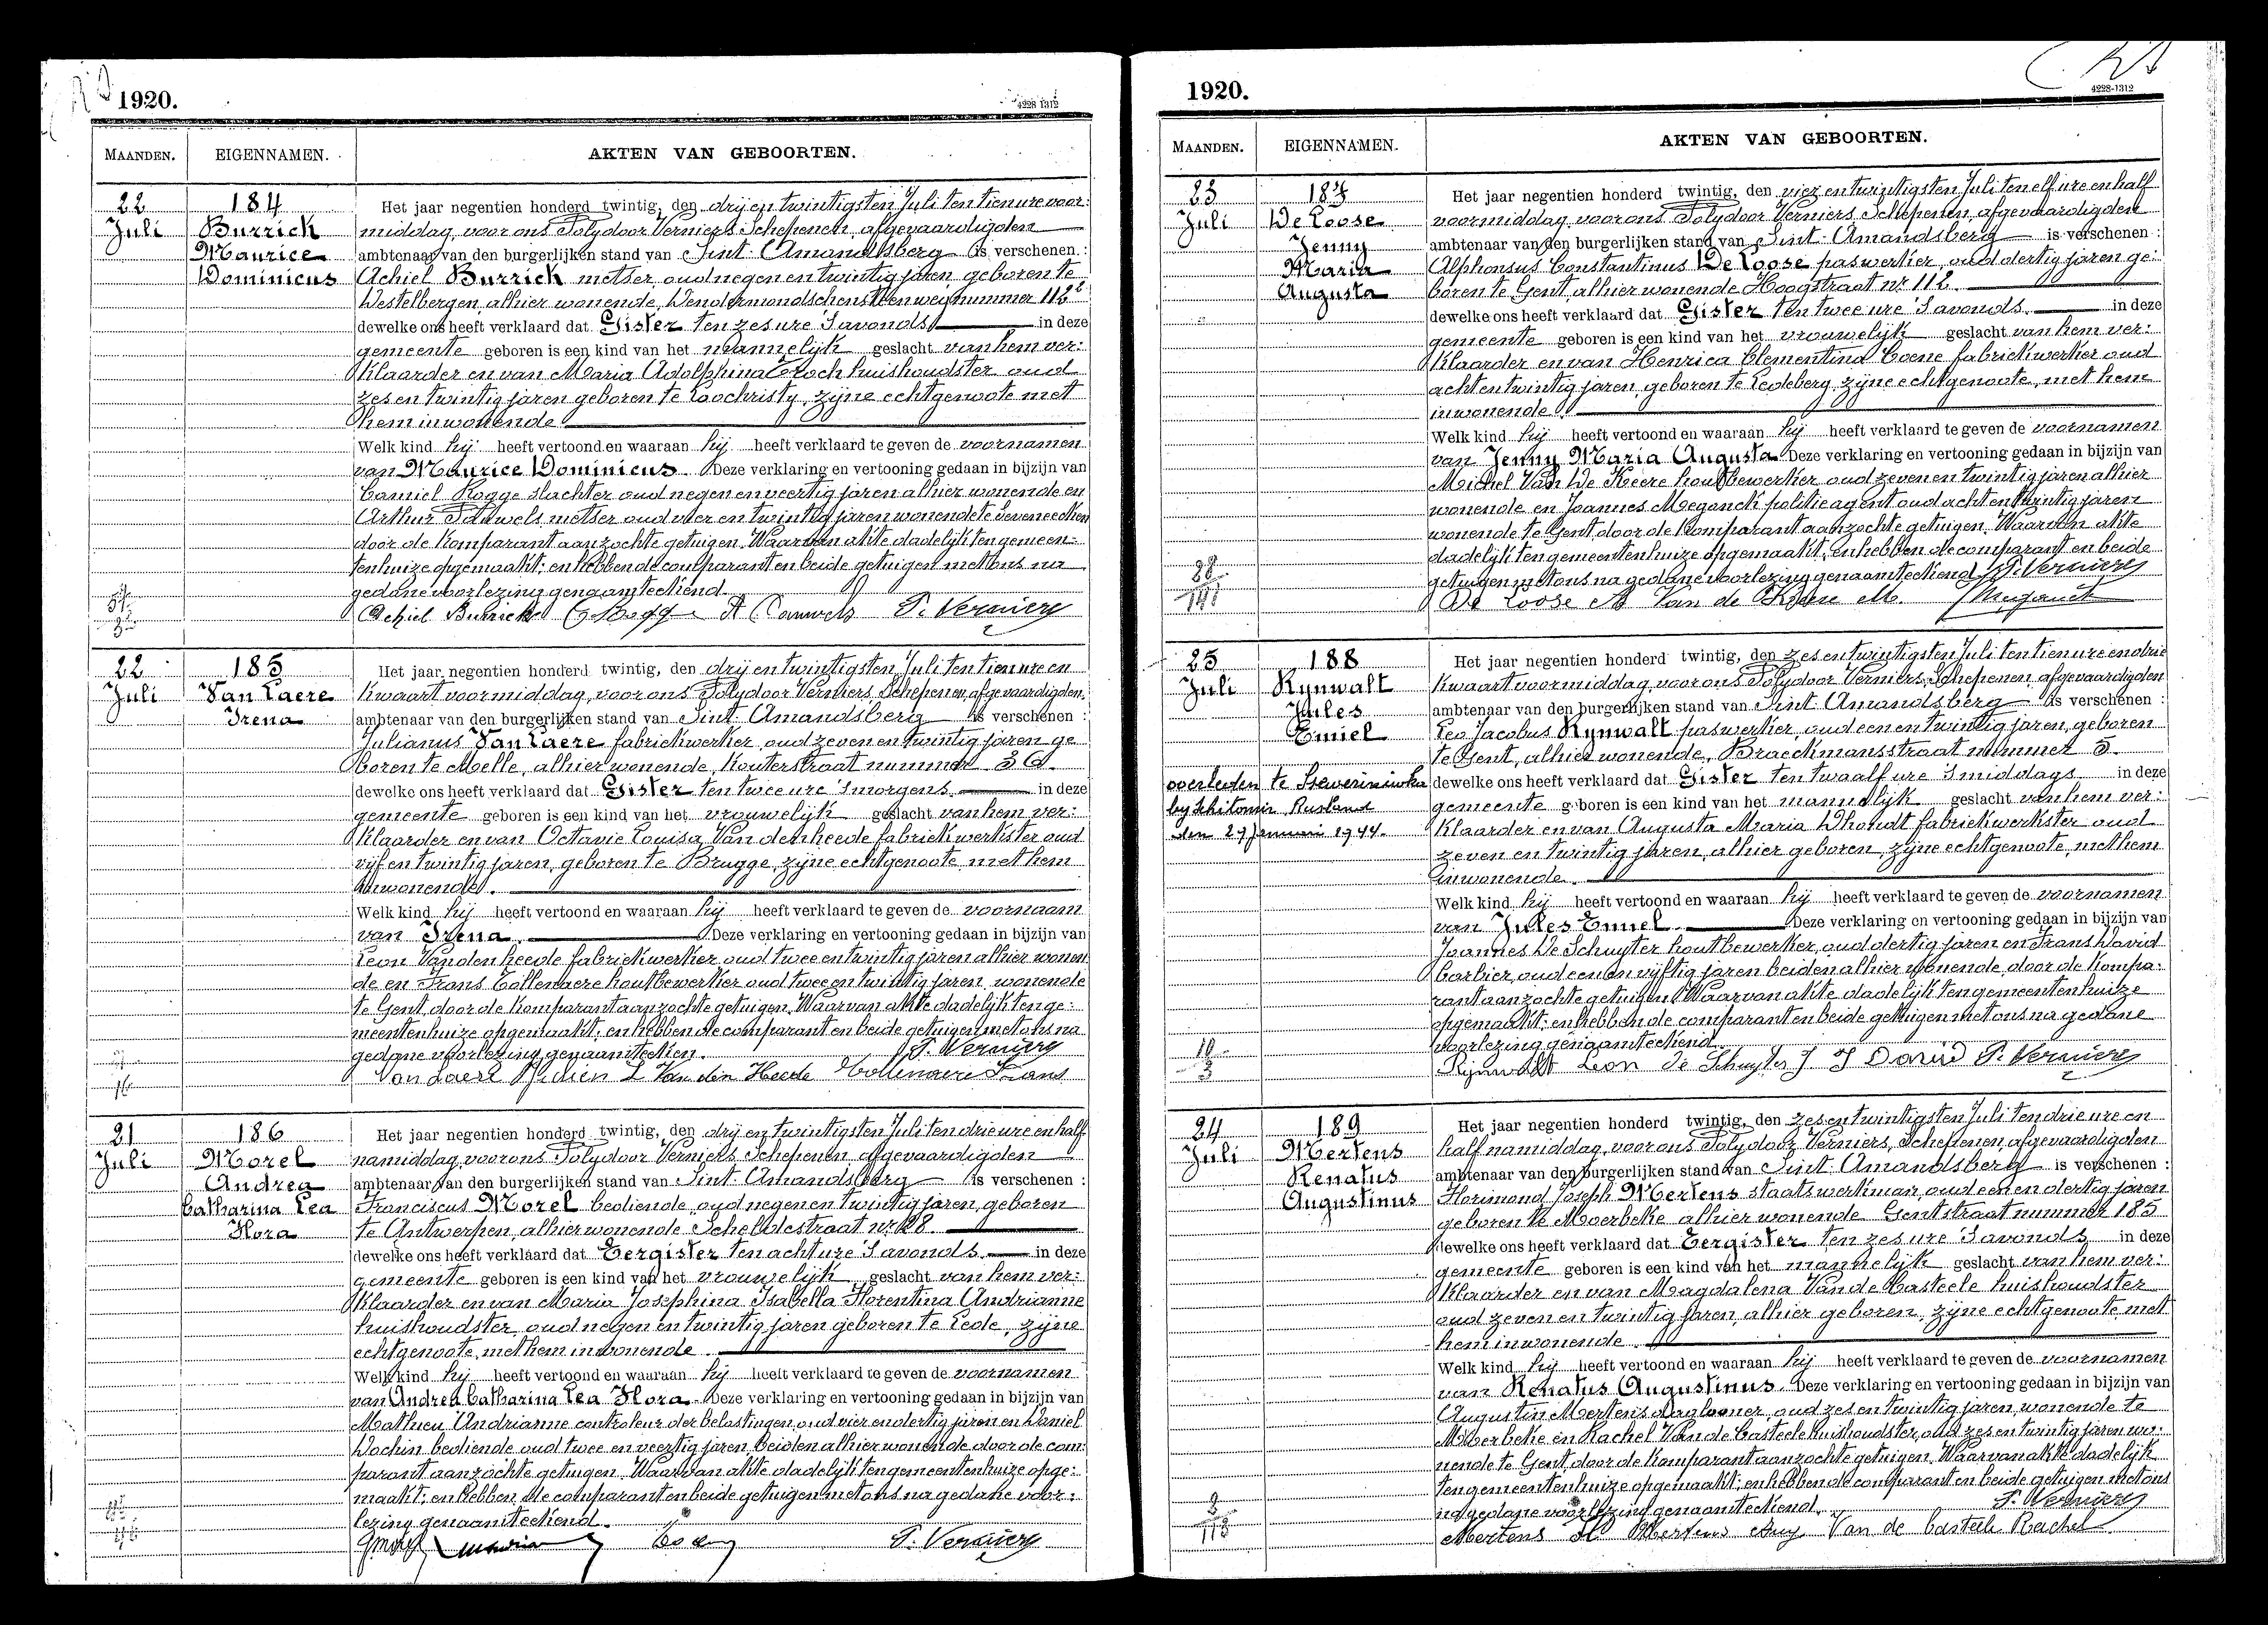 1920.
4228-1312
MAANDEN. EIGENNAMEN. AKTEN VAN GEBOORTEN.
22 184 Het jaar negentien honderd twintig, den drij en twintigsten Juli ten tien ure voor:
Juli Burrick middag, voor ons Polydoor Verniers Schepenen, afgevaardigden
Maurice ambtenaar van den burgerlijken stand van Sint-Amandsberg is verschenen :
Dominicus Achiel Burrick metser, oud negen en twintig jaren, geboren te
Destelbergen, alhier wonende, Dendermondschensteenweg nummer 112²
dewelke ons heeft verklaard dat Gister ten zes ure 's avonds in deze
gemeente geboren is een kind van het mannelijk geslacht van hem ver:
klaarder en van Maria Adolphina huishoudster oud
zes en twintig jaren geboren te Loochristy, zijne echtgenoote met
hem inwonende
Welk kind hij heeft vertoond en waaraan hij heeft verklaard te geven de voornamen
van Maurice Dominicus. Deze verklaring en vertooning gedaan in bijzijn van
Camiel Rogge slachter oud negen en veertig jaren alhier wonende en
Arthur Pauwels metser oud vier en twintig jaren wonende te Seveneecken
door de komparant aanzochte getuigen. Waarvan akte dadelijk ten gemeen-
tenhuize opgemaakt; en hebben de comparant en beide getuigen met ons na
gedane voorlezing genaamteekend.
Achiel Burrick C Rogge A Pauwels P. Verniers
22 185 Het jaar negentien honderd twintig, den drij en twintigsten Juli ten tien ure en
Juli Van Laere kwaart voormiddag, voor ons Polydoor Verniers Schepenen, afgevaardigden
Irena ambtenaar van den burgerlijken stand van Sint-Amandsberg is verschenen :
Julianus Van Laere fabriekwerker, oud zeven en twintig jaren ge
boren te Melle, alhier wonende, Kouterstraat nummer
dewelke ons heeft verklaard dat Gister ten twee ure 's morgens. in deze
gemeente geboren is een kind van het vrouwelijk geslacht van hem ver:
klaarder en van Octavie Louisa Van den heede fabriekwerkster oud
vijf en twintig jaren, geboren te Brugge, zijne echtgenoote, met hem
inwonende.
Welk kind hij heeft vertoond en waaraan hij heeft verklaard te geven de voornaam
van Irena. Deze verklaring en vertooning gedaan in bijzijn van
Leon Vanden heede fabriekwerker oud twee en twintig jaren alhier wonen
de en Frans Tollenaere houtbewerker oud twee en twintig jaren, wonende
te Gent, door de komparant aanzochte getuigen. Waarvan akte dadelijk ten ge:
meentenhuize opgemaakt; en hebben de comparant en beide getuigen met ons na
gedane voorlezing genaamteeken. P. Verniers
Van Laere Julien L Van den Heede Tollenaere Frans
21 186 Het jaar negentien honderd twintig, den drij en twintigsten Juli ten drie ure en half
Juli Morel namiddag, voor ons Polydoor Verniers Schepenen, afgevaardigden
Andrea ambtenaar van den burgerlijken stand van Sint-Amandsberg is verschenen :
Catharina Lea Franciscus Morel bediende, oud negen en twintig jaren, geboren
Flora te Antwerpen, alhier wonende Scheldestraat nr. 28.
dewelke ons heeft verklaard dat Eergister ten acht ure 's avonds. in deze
gemeente geboren is een kind van het vrouwelijk geslacht van hem ver:
klaarder en van Maria Josephina Isabella Florentina Andrianne
huishoudster, oud negen en twintig jaren geboren te Lede, zijne
echtgenoote, met hem inwonende.
Welk kind hij heeft vertoond en waaraan hij heeft verklaard te geven de voornamen
van Andrea Catharina Lea Flora. Deze verklaring en vertooning gedaan in bijzijn van
Matheu Andrianne controleur der belastingen, oud vier en dertig jaren en Daniel
Dochin bediende oud twee en veertig jaren. Beiden alhier wonende door de com:
parant aanzochte getuigen. Waarvan akte dadelijk ten gemeentenhuize opge:
maakt; en hebben de comparant en beide getuigen met ons na gedane voor:
lezing genaamteekend.
P. Verniers
1920.
4228-1312
MAANDEN. EIGENNAMEN. AKTEN VAN GEBOORTEN.
23 187 Het jaar negentien honderd twintig, den vier en twintigsten Juli ten elf ure en half
Juli De Loose voormiddag, voor ons Polydoor Verniers Schepenen, afgevaardigden
Jenny ambtenaar van den burgerlijken stand van Sint-Amandsberg is verschenen :
Maria Alphonsus Constantinus De Loose paswerker, oud dertig jaren ge:
Augusta boren te Gent alhier wonende Hoogstraat nr. 112.
dewelke ons heeft verklaard dat Gister ten twee ure 's avonds. in deze
gemeente geboren is een kind van het vrouwelijk geslacht van hem ver:
klaarder en van Henrica Clementina Coene fabriekwerker oud
acht en twintig jaren, geboren te Ledeberg, zijne echtgenoote, met hem
inwonende.
Welk kind hij heeft vertoond en waaraan hij heeft verklaard te geven de voornamen
van Jenny Maria Augusta. Deze verklaring en vertooning gedaan in bijzijn van
Michel Van De Keere houtbewerker oud zeven en twintig jaren alhier
wonende en Joannes Meganck politieagent oud acht en twintig jaren
wonende te Gent, door de komparant aanzochte getuigen. Waarvan akte
dadelijk ten gemeentenhuize opgemaakt; en hebben de comparant en beide
getuigen met ons na gedane voorlezing genaamteekend. P. Verniers
De Loose A Van de Keere M. J Meganck
25 188 Het jaar negentien honderd twintig, den zes en twintigsten Juli ten tien ure en drie
Juli Rynwalt kwaart voormiddag, voor ons Polydoor Verniers Schepenen, afgevaardigden
Jules ambtenaar van den burgerlijken stand van Sint-Amandsberg is verschenen :
Emiel Leo Jacobus Rynwalt paswerker, oud een en twintig jaren, geboren
te Gent, alhier wonende, Braeckmansstraat nummer 5.
overleden te Sseweriniwka dewelke ons heeft verklaard dat Gister ten twaalf ure 's middags in deze
by Shitomir, Rusland gemeente geboren is een kind van het mannelijk geslacht van hem ver:
den 27 Januari 1944. klaarder en van Augusta Maria Dhondt fabriekwerkster oud
zeven en twintig jaren, alhier geboren, zijne echtgenoote, met hem
inwonende.
Welk kind hij heeft vertoond en waaraan hij heeft verklaard te geven de voornamen
van Jules Emiel. Deze verklaring en vertooning gedaan in bijzijn van
Joannes De Schuyter houtbewerker, oud dertig jaren en Frans David
barbier, oud een en vyftig jaren beiden alhier wonende, door de kompa:
rant aanzochte getuigen. Waarvan akte dadelijk ten gemeentenhuize
opgemaakt; en hebben de comparant en beide getuigen met ons na gedane
voorlezing genaamteekend.
Rijnwalt Leon De Schuyter J F David P. Verniers
24 189 Het jaar negentien honderd twintig, den zes en twintigsten Juli ten drie ure en
Juli Mertens half namiddag, voor ons Polydoor Verniers, Schepenen, afgevaardigden
Renatus ambtenaar van den burgerlijken stand van Sint-Amandsberg is verschenen :
Augustinus Florimond Joseph Mertens staatswerkman, oud een en dertig jaren
geboren te Moerbeke alhier wonende Gentstraat nummer 185
dewelke ons heeft verklaard dat Eergister ten zes ure 's avonds in deze
gemeente geboren is een kind van het mannelijk geslacht van hem ver:
klaarder en van Magdalena Van de Casteele huishoudster
oud zeven en twintig jaren, alhier geboren, zijne echtgenoote, met
hem inwonende.
Welk kind hij heeft vertoond en waaraan hij heeft verklaard te geven de voornamen
van Renatus Augustinus. Deze verklaring en vertooning gedaan in bijzijn van
Augustin Mertens daglooner, oud zes en twintig jaren, wonende te
Moerbeke en Rachel Van de Casteele huishoudster, oud zes en twintig jaren wo:
nende te Gent, door de komparant aanzochte getuigen. Waarvan akte dadelijk
ten gemeentenhuize opgemaakt; en hebben de comparant en beide getuigen met ons
na gedane voorlezing genaamteekend. P. Verniers
Mertens Fl Mertens Aug Van de Casteele Rachel